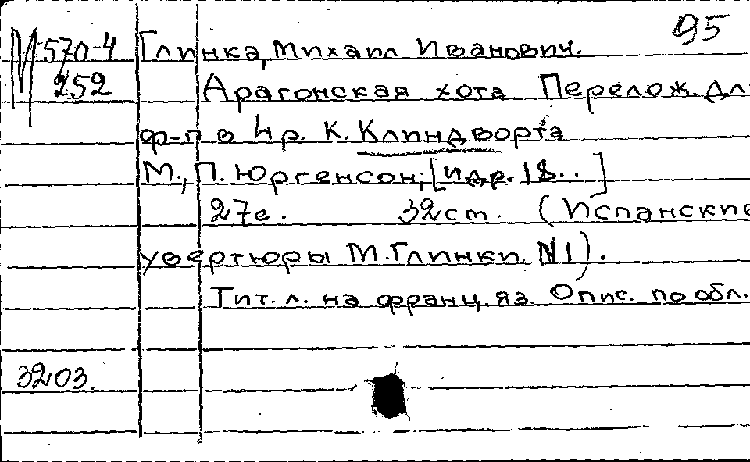 95
М 570-4 Глинка, Михаил Иванович.
252 Арагонская хота Перелож. дл
ф-п о Нр. К. Клиндворта
М., П. Юргенсон, [и.д.р. 18..]
27с. 32см. (Испанские
увертюры М. Глинки. N1).
Тит. л. на франц. яз. Опис. по обл.
3203.